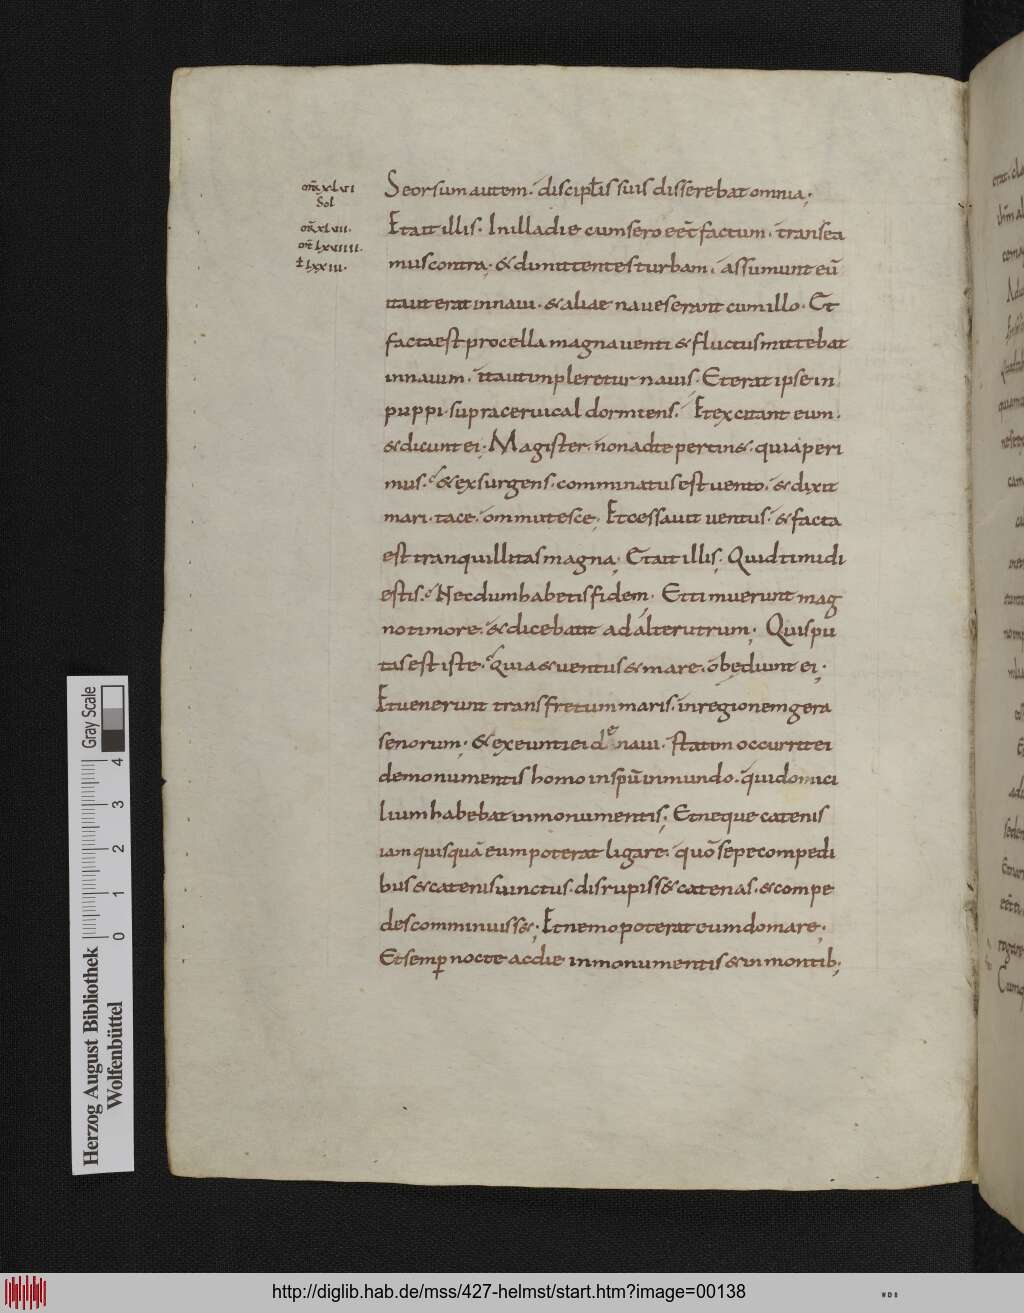 om̄ xlvi
Sol
om̄ xlvii.
om̄ lxviiii.
ł lxxiii.
Seorsum autem. discipl̄is suis disserebat omnia;
Et ait illis. In illa die cum sero eēt factum. transea
mus contra; & dimittentes turbam. assumunt eū
ita ut erat in naui. & aliae naues erant cum illo. Et
facta est procella magna uenti & fluctus mittebat
in nauim. ita ut impleretur nauis. Et erat ipse in
puppi. supra ceruical dormiens. Et excitant eum.
& dicunt ei; Magister. non ad te pertin&. quia peri
mus. & exsurgens. comminatus est uento. & dixit
mari. tace. ommutesce; Et cessauit uentus. & facta
est tranquillitas magna; Et ait illis; Quid timidi
estis. Necdum habetis fidem. Et timuerunt mag
no timore. & dicebant ad alterutrum; Quis pu
tas est iste. Quia & uentus & mare. obędiunt ei;
Et uenerunt trans fretum maris. in regionem gera
senorum; & exeunti ei de naui. statim occurrit ei
de monumentis homo in spū inmundo. qui domici
lium habebat in monumentis; Et neque catenis
iam quisquā eum poterat ligare. quō sepe compedi
bus & catenis uinctus. disrupiss& catenas. & compe
des comminuiss&; Et nemo poterat eum domare;
Et semp̄ nocte ac die in monumentis & in montib;
Gray Scale
0 1 2 3 4
Herzog August Bibliothek
Wolfenbüttel
http://diglib.hab.de/mss/427-helmst/start.htm?image=00138